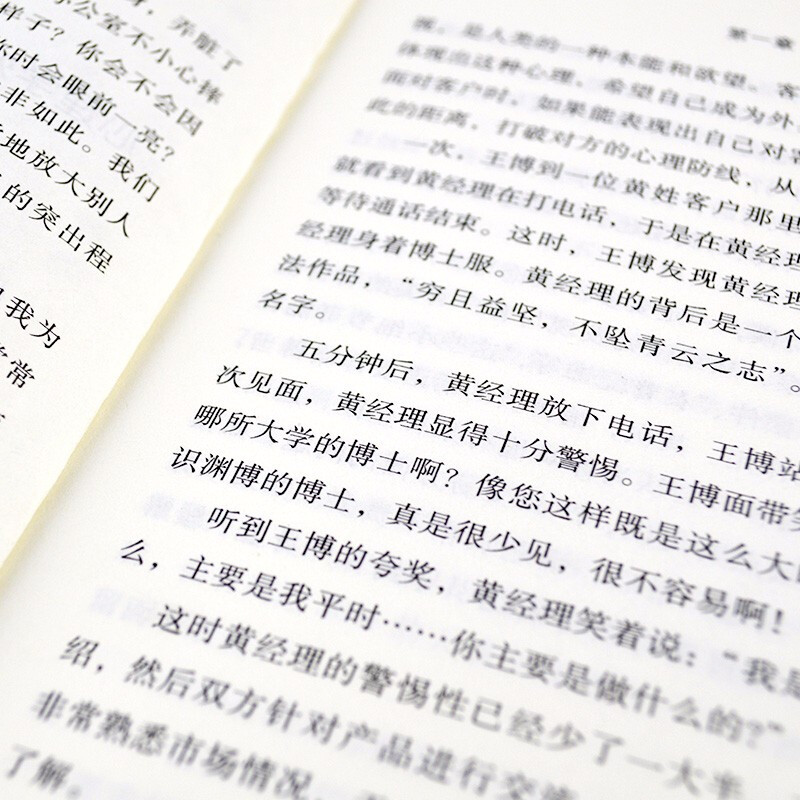 身，弄脏了
办公室不小心摔
样子？你会不会因
你时会眼前一亮？
非如此。我们
地放大别人
的突出程
我为
常常
第一章
是人类的一种本能和欲望。客
体现出这种心理，希望自己成为外
面对客户时，如果能表现出自己对客
此的距离，打破对方的心理防线，从
一次，王博到一位黄姓客户那里
就看到黄经理在打电话，于是在黄经理
等待通话结束。这时，王博发现黄经理
经理身着博士服。黄经理的背后是一个
法作品，“穷且益坚，不坠青云之志”。
名字。
五分钟后，黄经理放下电话，王博站
次见面，黄经理显得十分警惕。王博面带笑
哪所大学的博士啊？像您这样既是这么大
识渊博的博士，真是很少见，很不容易啊！
听到王博的夸奖，黄经理笑着说：“我是
么，主要是我平时……你主要是做什么的？”
这时黄经理的警惕性已经少了一大半
绍，然后双方针对产品进行交流
非常熟悉市场情况，
了解。